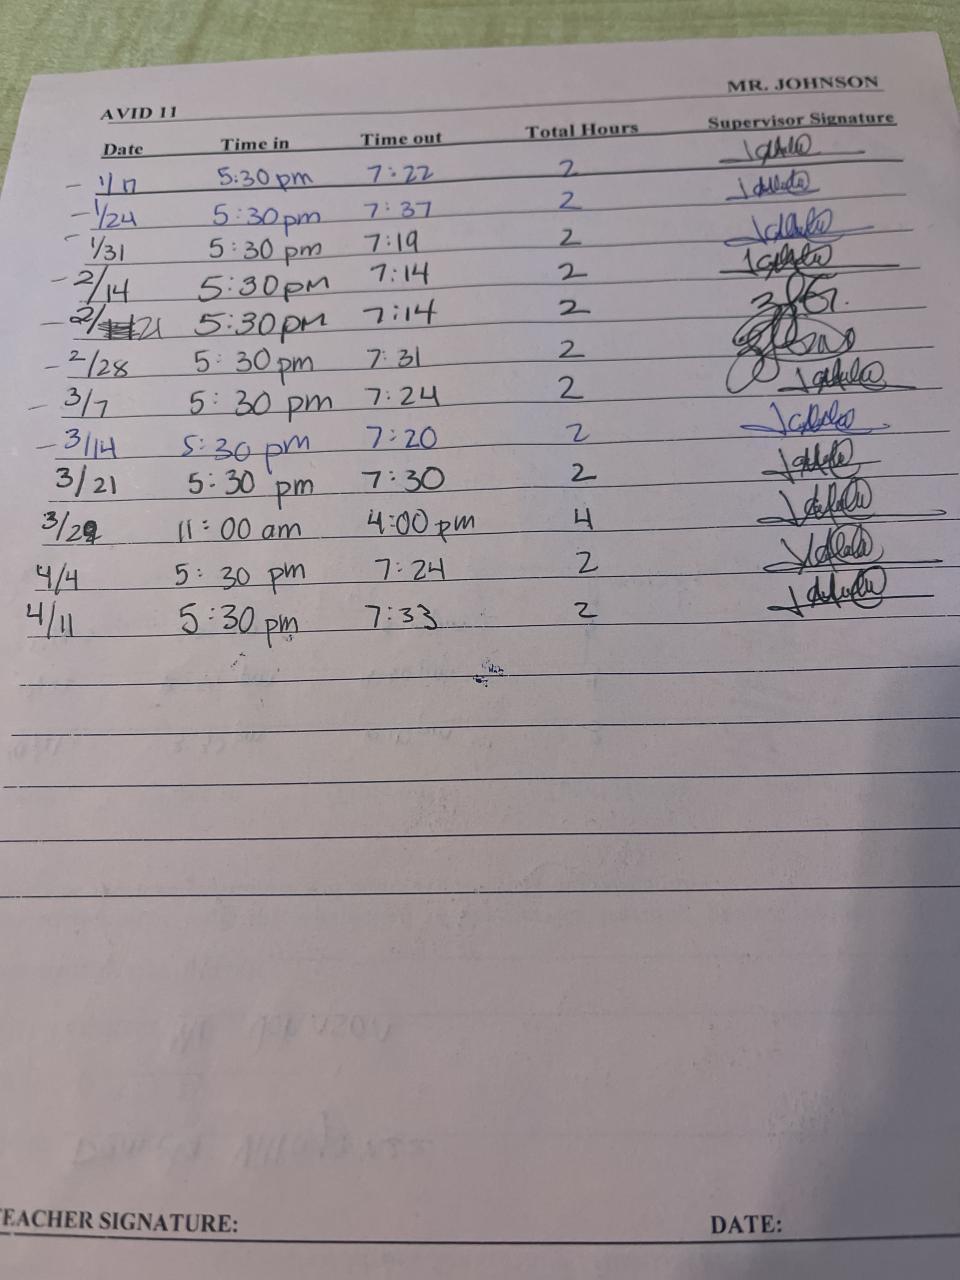 AVID 11 MR. JOHNSON
Date Time in Time out Total Hours Supervisor Signature
- 1/17 5:30 pm 7:22 2
- 1/24 5:30pm 7:37 2
- 1/31 5:30 pm 7:19 2
- 2/14 5:30pm 7:14 2
- 2/21 5:30pm 7:14 2
- 2/28 5:30pm 7:31 2
- 3/7 5:30 pm 7:24 2
- 3/14 5:30 pm 7:20 2
3/21 5:30 pm 7:30 2
3/29 11:00 am 4:00pm 4
4/4 5:30 pm 7:24 2
4/11 5:30 pm 7:33 2
TEACHER SIGNATURE: DATE: